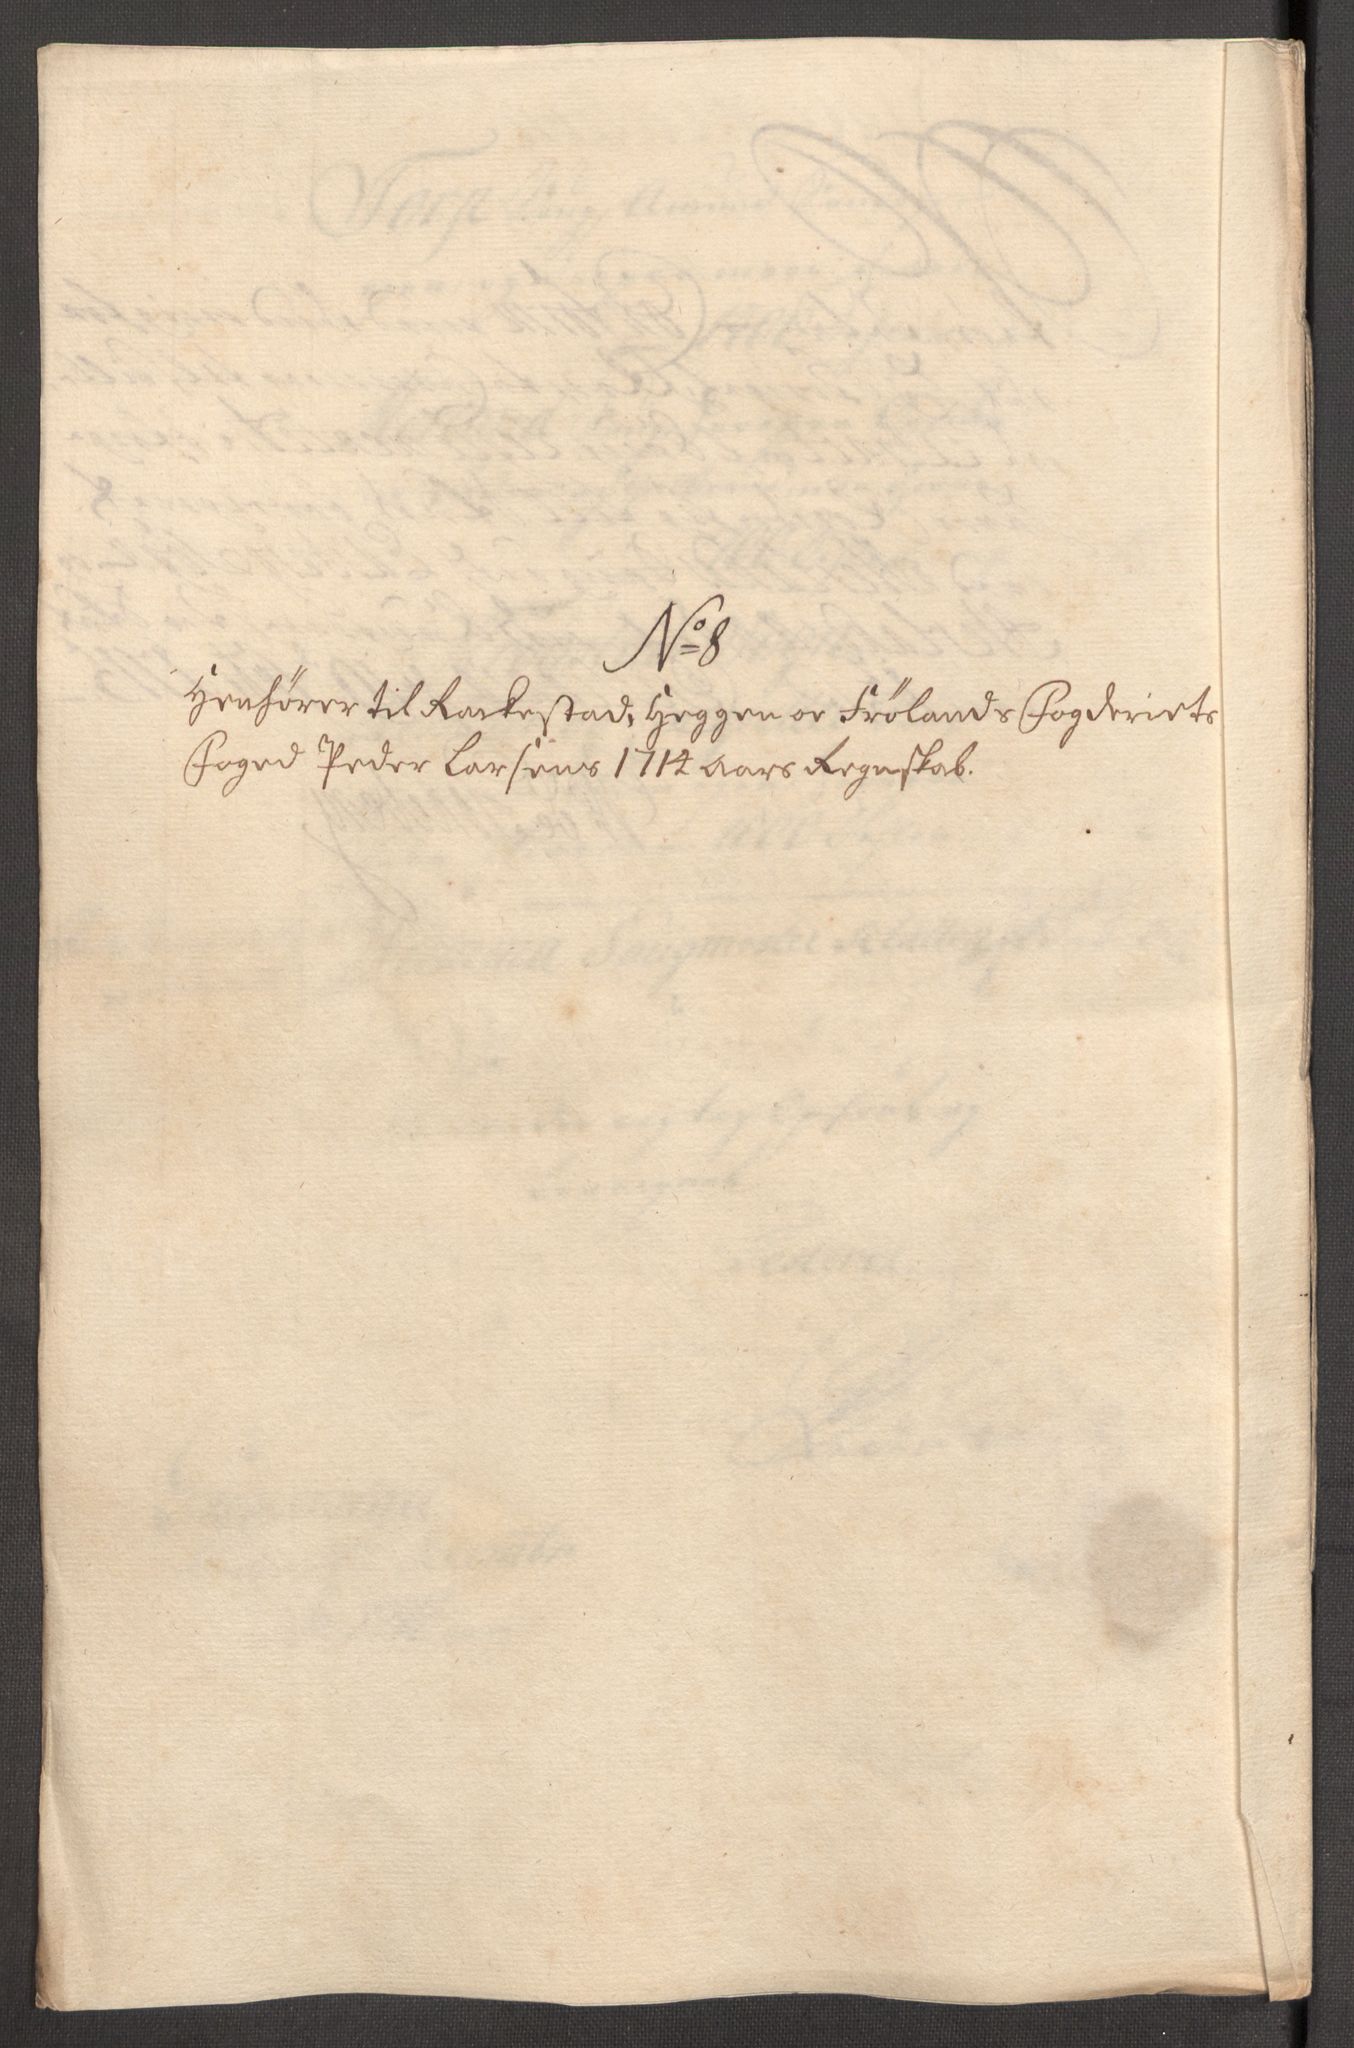 No 8
Henhörer til Rackestad, Heggen oc Frölands Fogderiets
Foged Peder Larsens 1714 aars Regnskab.